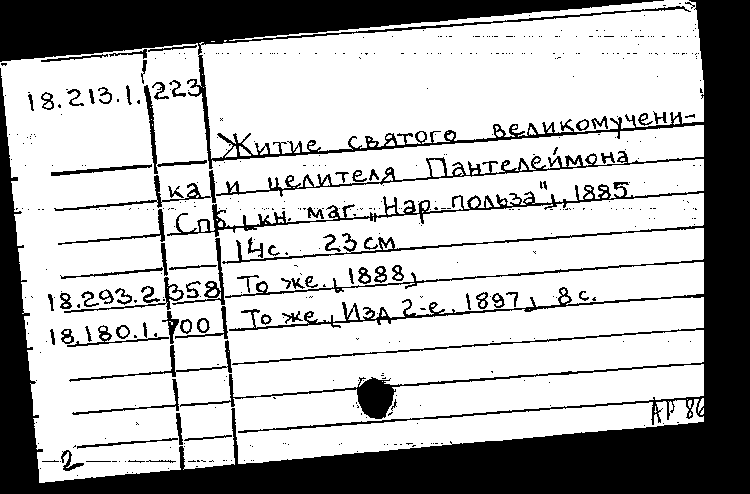 18.213.1.223
Житие святого великомучени-
ка и целителя Пантелеймона.
Спб, [кн. маг. „Нар. польза"], 1885.
14с. 23см
18.293.2.358 То же. [1888]
18.180.1.700 То же. [Изд 2-е. 1897] 8 с.
АР 86
2